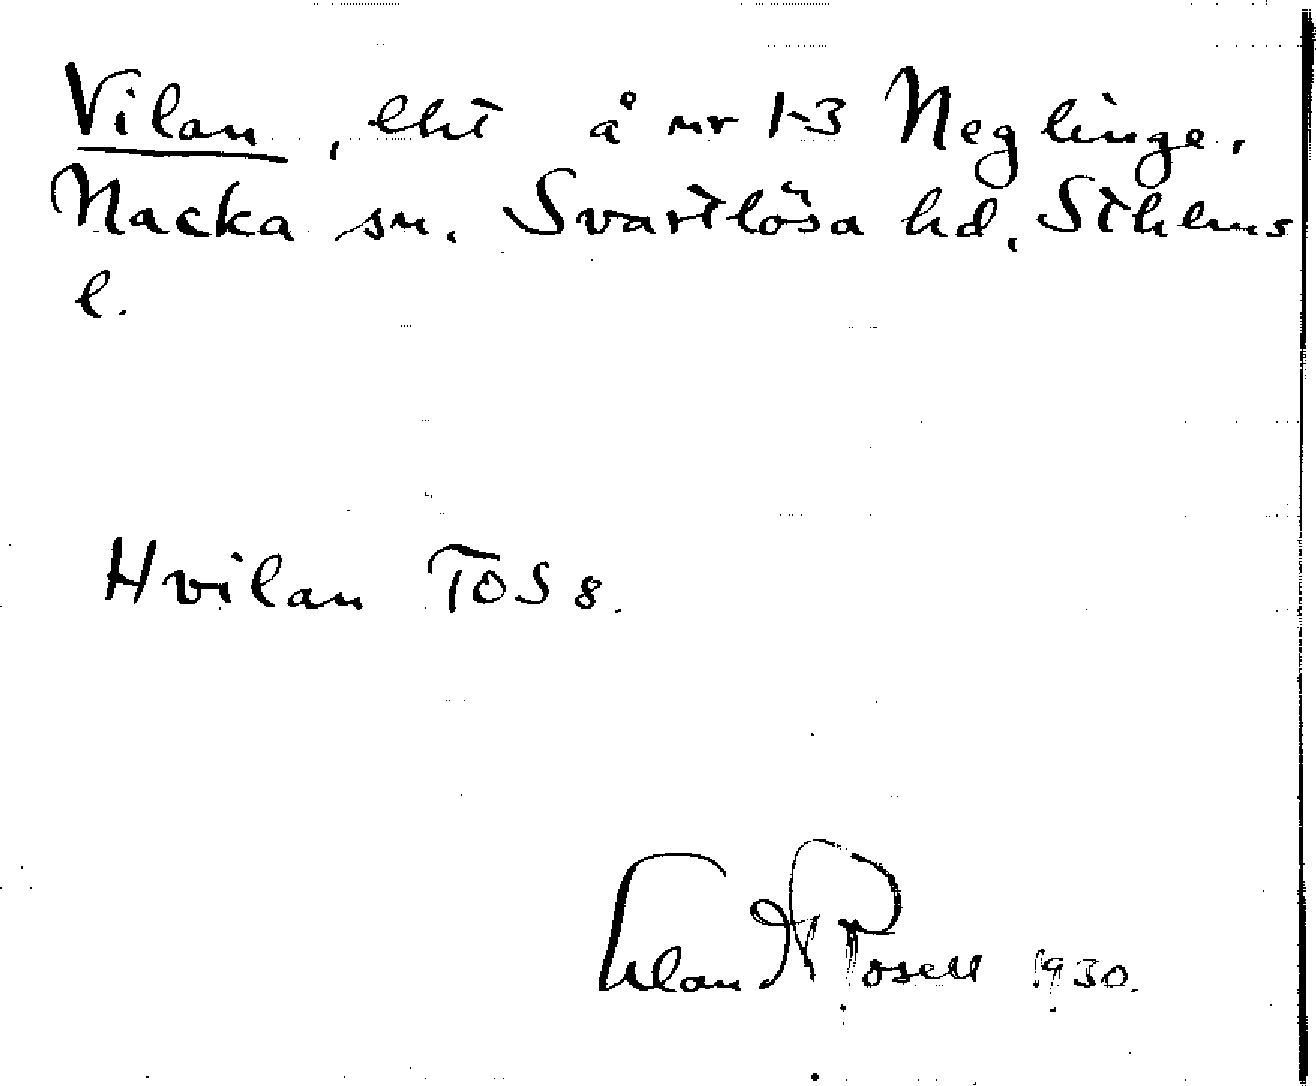 Vilan, lht å nr 1-3 Neglinge,
Nacka sn. Svartlösa hd, Sthlms
l.
Hvilan TOS 8.
Erland Rosell 1930.